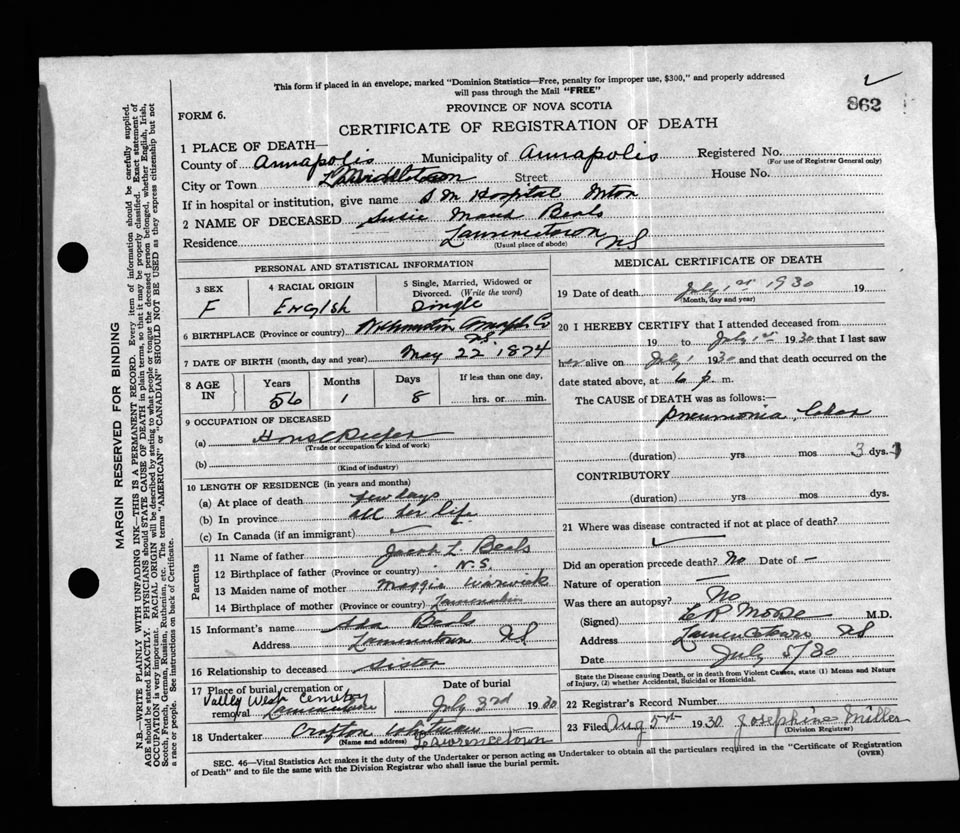 This form if placed in an envelope, marked "Dominion Statistics—Free, penalty for improper use, $300," and properly addressed
will pass through the Mail "FREE"
862
FORM 6.
PROVINCE OF NOVA SCOTIA
CERTIFICATE OF REGISTRATION OF DEATH
1 PLACE OF DEATH—
County of Annapolis Municipality of Annapolis Registered No.
(For use of Registrar General only)
City or Town Middleton Street House No.
If in hospital or institution, give name S M Hospital Mton
2 NAME OF DECEASED Susie Maud Beals
Residence Lawrencetown NS
(Usual place of abode)
PERSONAL AND STATISTICAL INFORMATION
3 SEX F
4 RACIAL ORIGIN English
5 Single, Married, Widowed or Divorced. (Write the word) Single
6 BIRTHPLACE (Province or country) Annap Co NS.
7 DATE OF BIRTH (month, day and year) May 22 1874
8 AGE IN Years 56 Months 1 Days 8 If less than one day, hrs. or min.
9 OCCUPATION OF DECEASED
(a) Housekeeper
(Trade or occupation or kind of work)
(b)
(Kind of industry)
10 LENGTH OF RESIDENCE (in years and months)
(a) At place of death few days
(b) In province all her life
(c) In Canada (if an immigrant)
Parents
11 Name of father Jacob L. Beals
12 Birthplace of father (Province or country) N.S.
13 Maiden name of mother Maggie Warwick
14 Birthplace of mother (Province or country)
15 Informant's name Ada Beals
Address Lawrencetown NS
16 Relationship to deceased Sister
17 Place of burial, cremation or removal Valley West Cemetry Lawrencetown
Date of burial July 3rd 1930
18 Undertaker Crofton Whitman
(Name and address) Lawrencetown
MEDICAL CERTIFICATE OF DEATH
19 Date of death July 1st 1930 19
(Month, day and year)
20 I HEREBY CERTIFY that I attended deceased from
19 to July 1st 1930 that I last saw
her alive on July 1 1930 and that death occurred on the
date stated above, at 6 p m.
The CAUSE OF DEATH was as follows:—
pneumonia, lobar
(duration) yrs mos 3 dys.
CONTRIBUTORY
(duration) yrs mos dys.
21 Where was disease contracted if not at place of death?
Did an operation precede death? No Date of —
Nature of operation —
Was there an autopsy? No
(Signed) M.D.
Address Lawrencetown NS
Date July 5/30
State the Disease causing Death, or in death from Violent Causes, state (1) Means and Nature
of Injury, (2) whether Accidental, Suicidal or Homicidal.
22 Registrar's Record Number
23 Filed Aug 5th 1930 Josephine Miller
(Division Registrar)
SEC. 46—Vital Statistics Act makes it the duty of the Undertaker or person acting as Undertaker to obtain all the particulars required in the "Certificate of Registration
of Death" and to file the same with the Division Registrar who shall issue the burial permit.
(OVER)
MARGIN RESERVED FOR BINDING
N.B.—WRITE PLAINLY WITH UNFADING INK—THIS IS A PERMANENT RECORD. Every item of information should be carefully supplied.
AGE should be stated EXACTLY. PHYSICIANS should STATE CAUSE OF DEATH in plain terms, so that it may be properly classified. Exact statement of
OCCUPATION is very important. RACIAL ORIGIN will be described by stating to what people or tongue the deceased person belonged, whether English, Irish,
Scotch, French, German, Russian, Ruthenian, etc. The terms "AMERICAN" or "CANADIAN" SHOULD NOT BE USED as they express citizenship but not
a race or people. See instructions on back of Certificate.